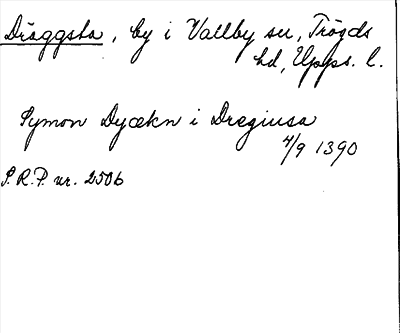 Dräggsta, by i Vallby sn, Trögds
hd, Upps. l.
Symon Dyækn i Drægiusa
4/9 1390
S.R.P. nr. 2506